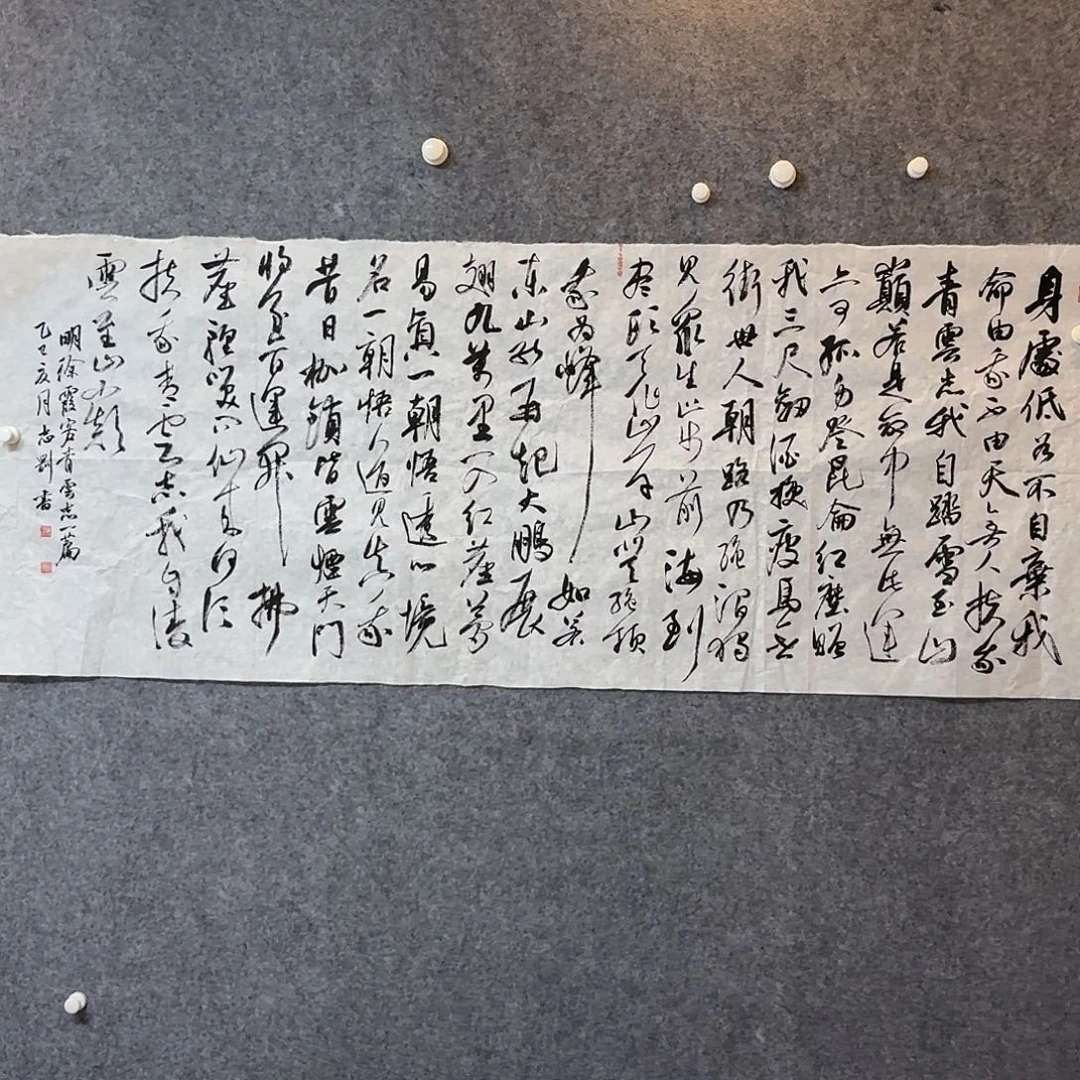 身處低谷不自棄我
命由我不由天無人扶我
青雲志我自踏雪至山
巔若是命中無此運
亦可孤身登昆侖紅塵賜
我三尺劍酒換瘦馬世
街世人朝路乃絕獨
見眾生步前海到
盡頭天作岸山登絕頂
我為峰如若
東山能再起大鵬展
翅九萬里一入紅塵夢
易真一朝悟透心境
名一朝悟道見真我
昔日枷鎖皆雲煙天門
將至百運
拂塵輕笑問仙
扶我青雲志我自凌
雲至山巔
明徐霞客青雲志一篇
乙巳亥月志剛書